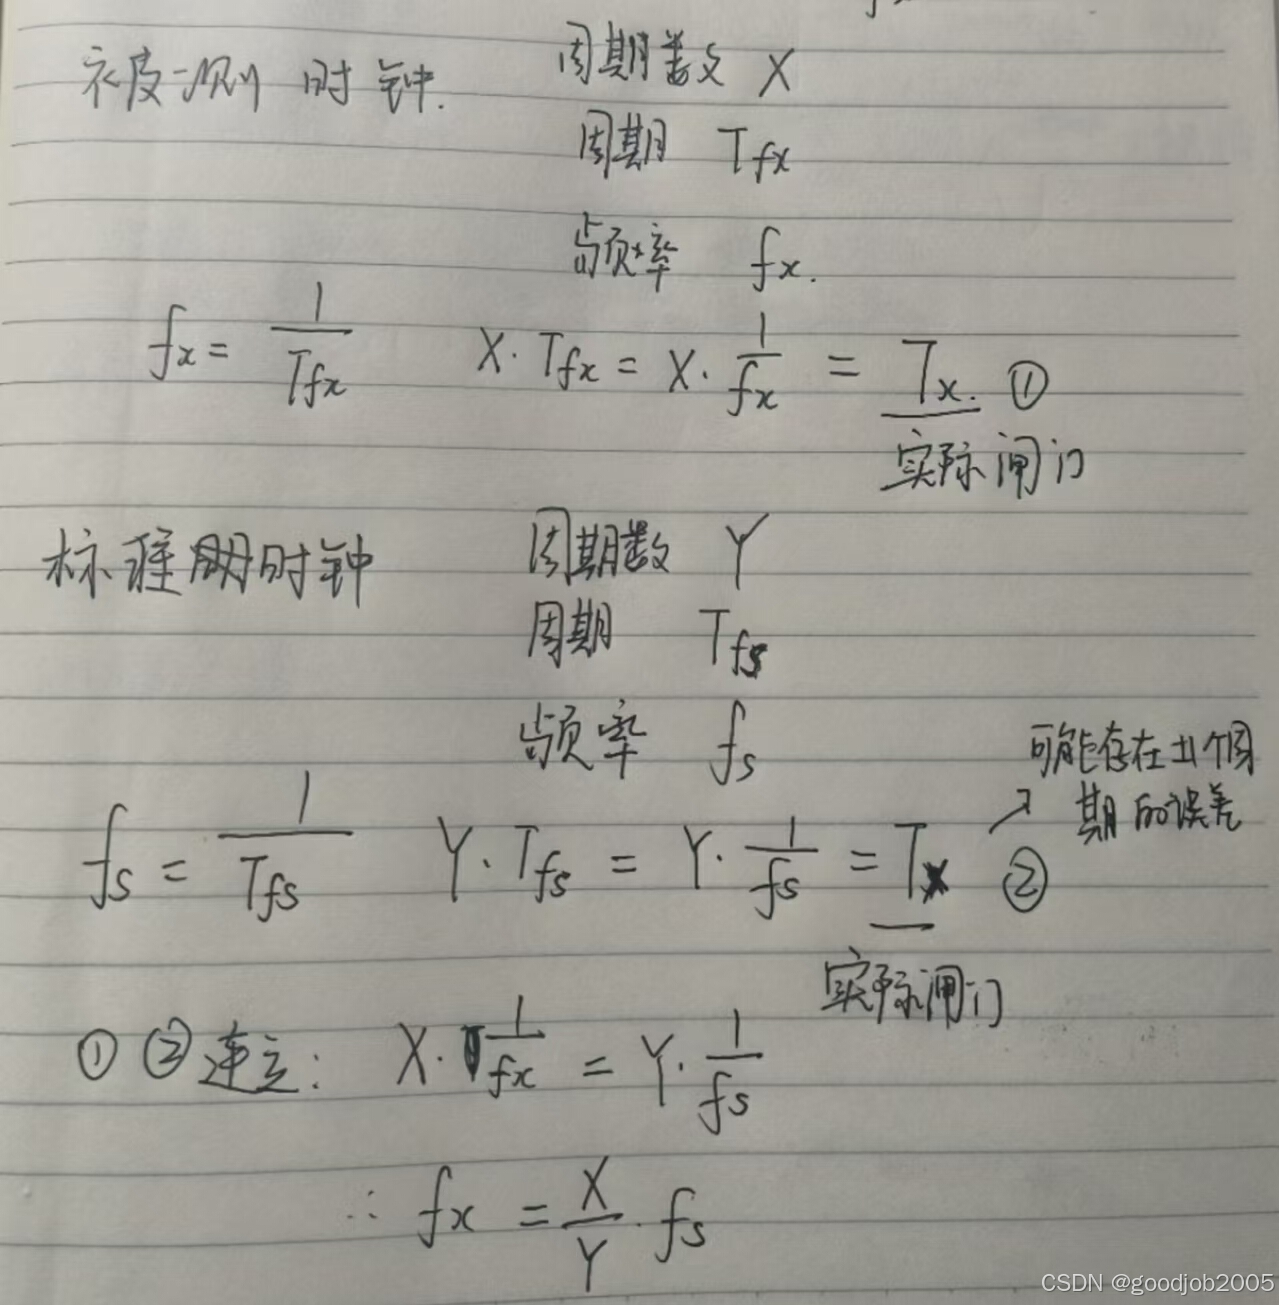 被测时钟. 周期数 X
周期 Tfx
频率 fx.
fx = 1/Tfx X·Tfx = X·1/fx = Tx. ①
实际闸门
标准时钟 周期数 Y
周期 Tfs
频率 fs
可能存在±1个周
期的误差
fs = 1/Tfs Y·Tfs = Y·1/fs = Tx ②
实际闸门
① ② 连立: X·1/fx = Y·1/fs
∴ fx = X/Y·fs
CSDN @goodjob2005